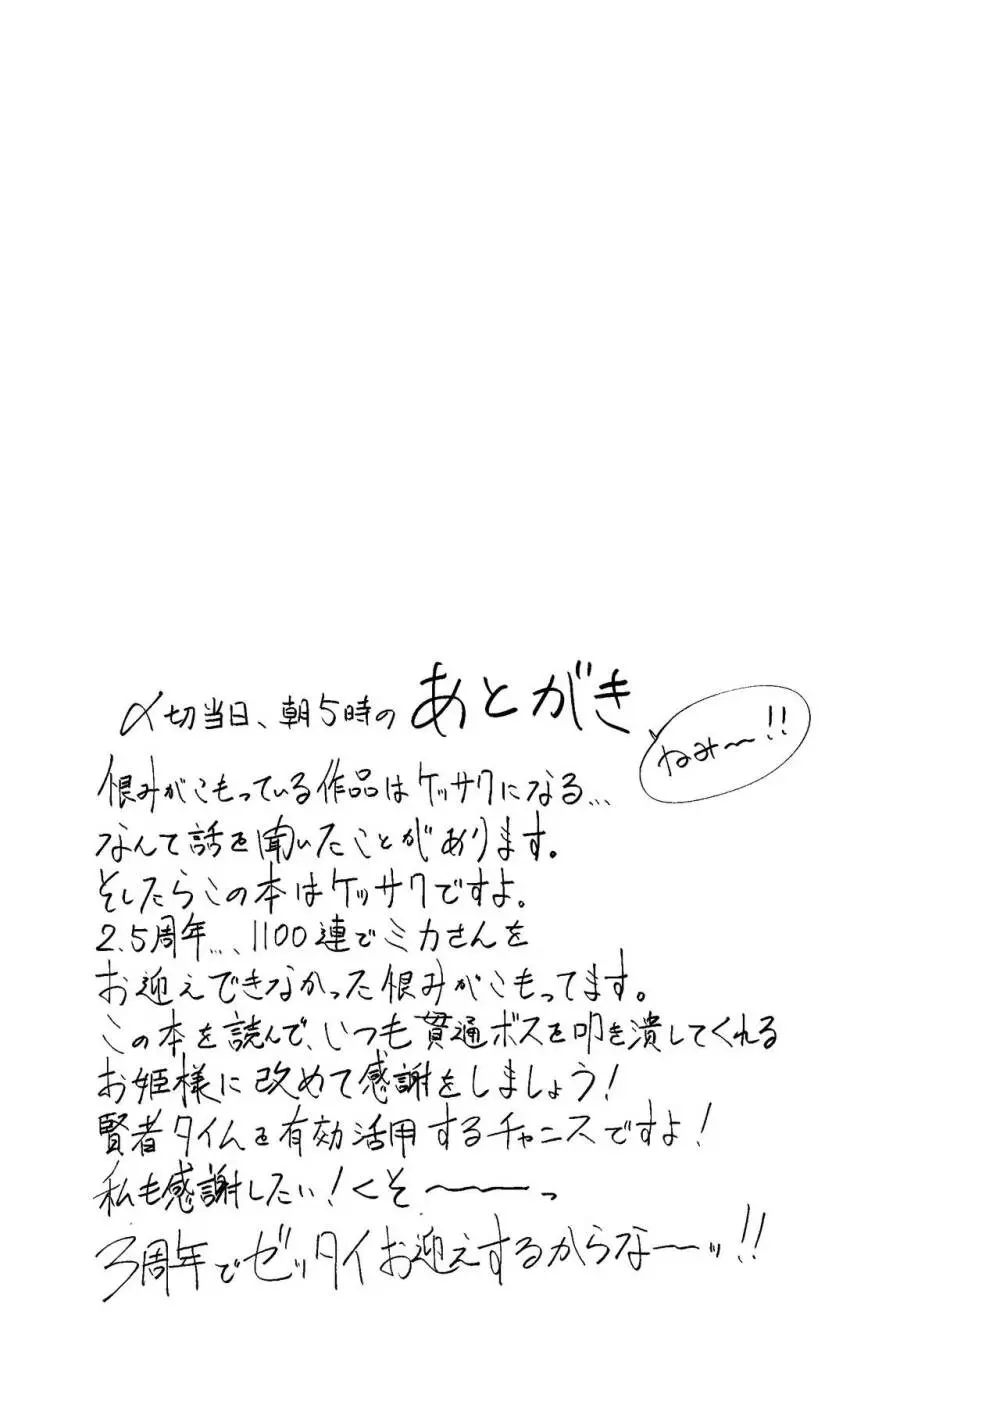 〆切当日、朝5時のあとがき
ねみ〜〜!!
恨みがこもっている作品はケッサクになる…
なんて話を聞いたことがあります。
そしたらこの本はケッサクですよ。
2.5周年….1100連でミカさんを
お迎えできなかった恨みがこもってます。
この本を読んで、いつも貫通ボスを叩き潰してくれる
お姫様に改めて感謝をしましょう!
賢者タイムを有効活用するチャンスですよ!
私も感謝したい!くそ〜〜〜っ
3周年でゼッタイお迎えするからな〜〜ッ!!